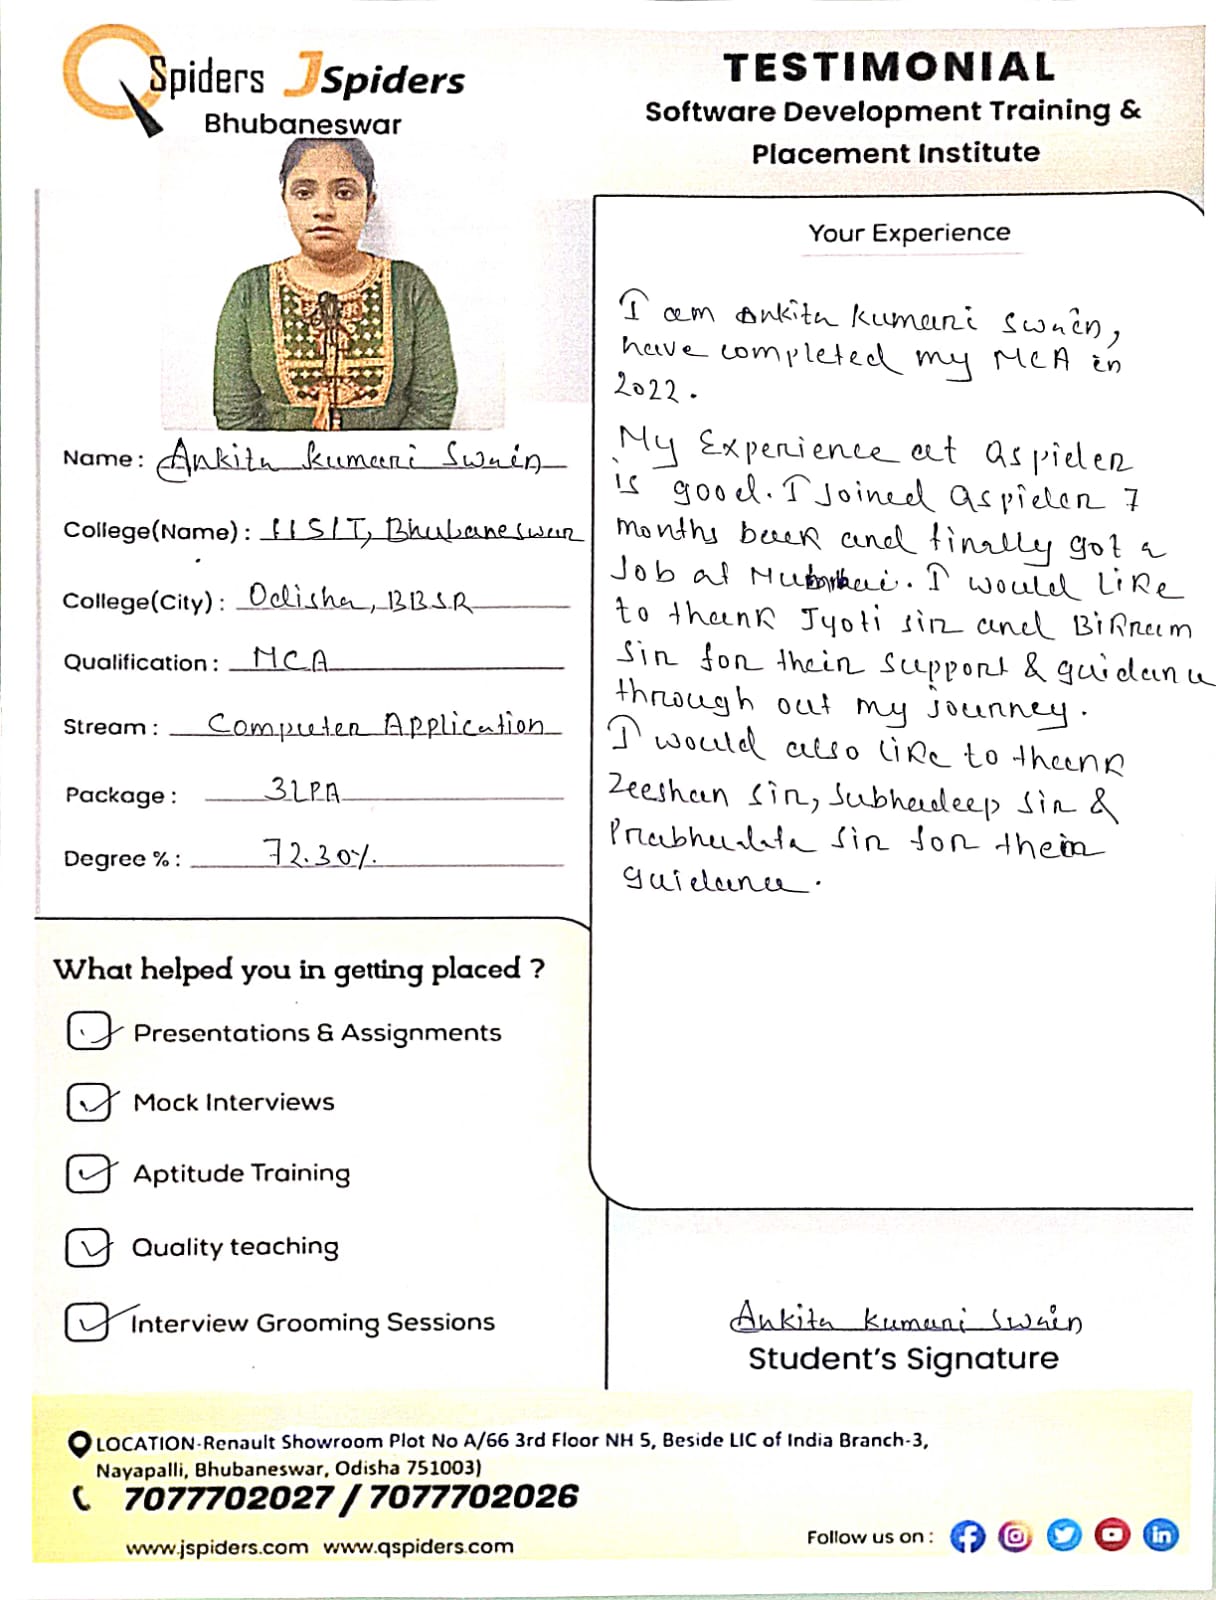 QSpiders JSpiders
Bhubaneswar
TESTIMONIAL
Software Development Training &
Placement Institute
Name: Ankita Kumari Swain
College(Name): IISIT, Bhubaneswar
College(City): Odisha, BBSR
Qualification: MCA
Stream: Computer Application
Package: 3LPA
Degree %: 72.30%
Your Experience
I am Ankita Kumari Swain,
have completed my MCA in
2022.
My Experience at Qspider
is good. I Joined Qspider 7
months back and finally got a
Job at Mumbai. I would like
to thank Jyoti sir and Bikram
Sir for their support & guidance
through out my journey.
I would also like to thank
Zeeshan Sir, Subhadeep Sir &
Prabhudata Sir for their
guidance.
What helped you in getting placed ?
Presentations & Assignments
Mock Interviews
Aptitude Training
Quality teaching
Interview Grooming Sessions
Ankita Kumari Swain
Student's Signature
LOCATION-Renault Showroom Plot No A/66 3rd Floor NH 5, Beside LIC of India Branch-3,
Nayapalli, Bhubaneswar, Odisha 751003)
7077702027 / 7077702026
www.jspiders.com www.qspiders.com
Follow us on :